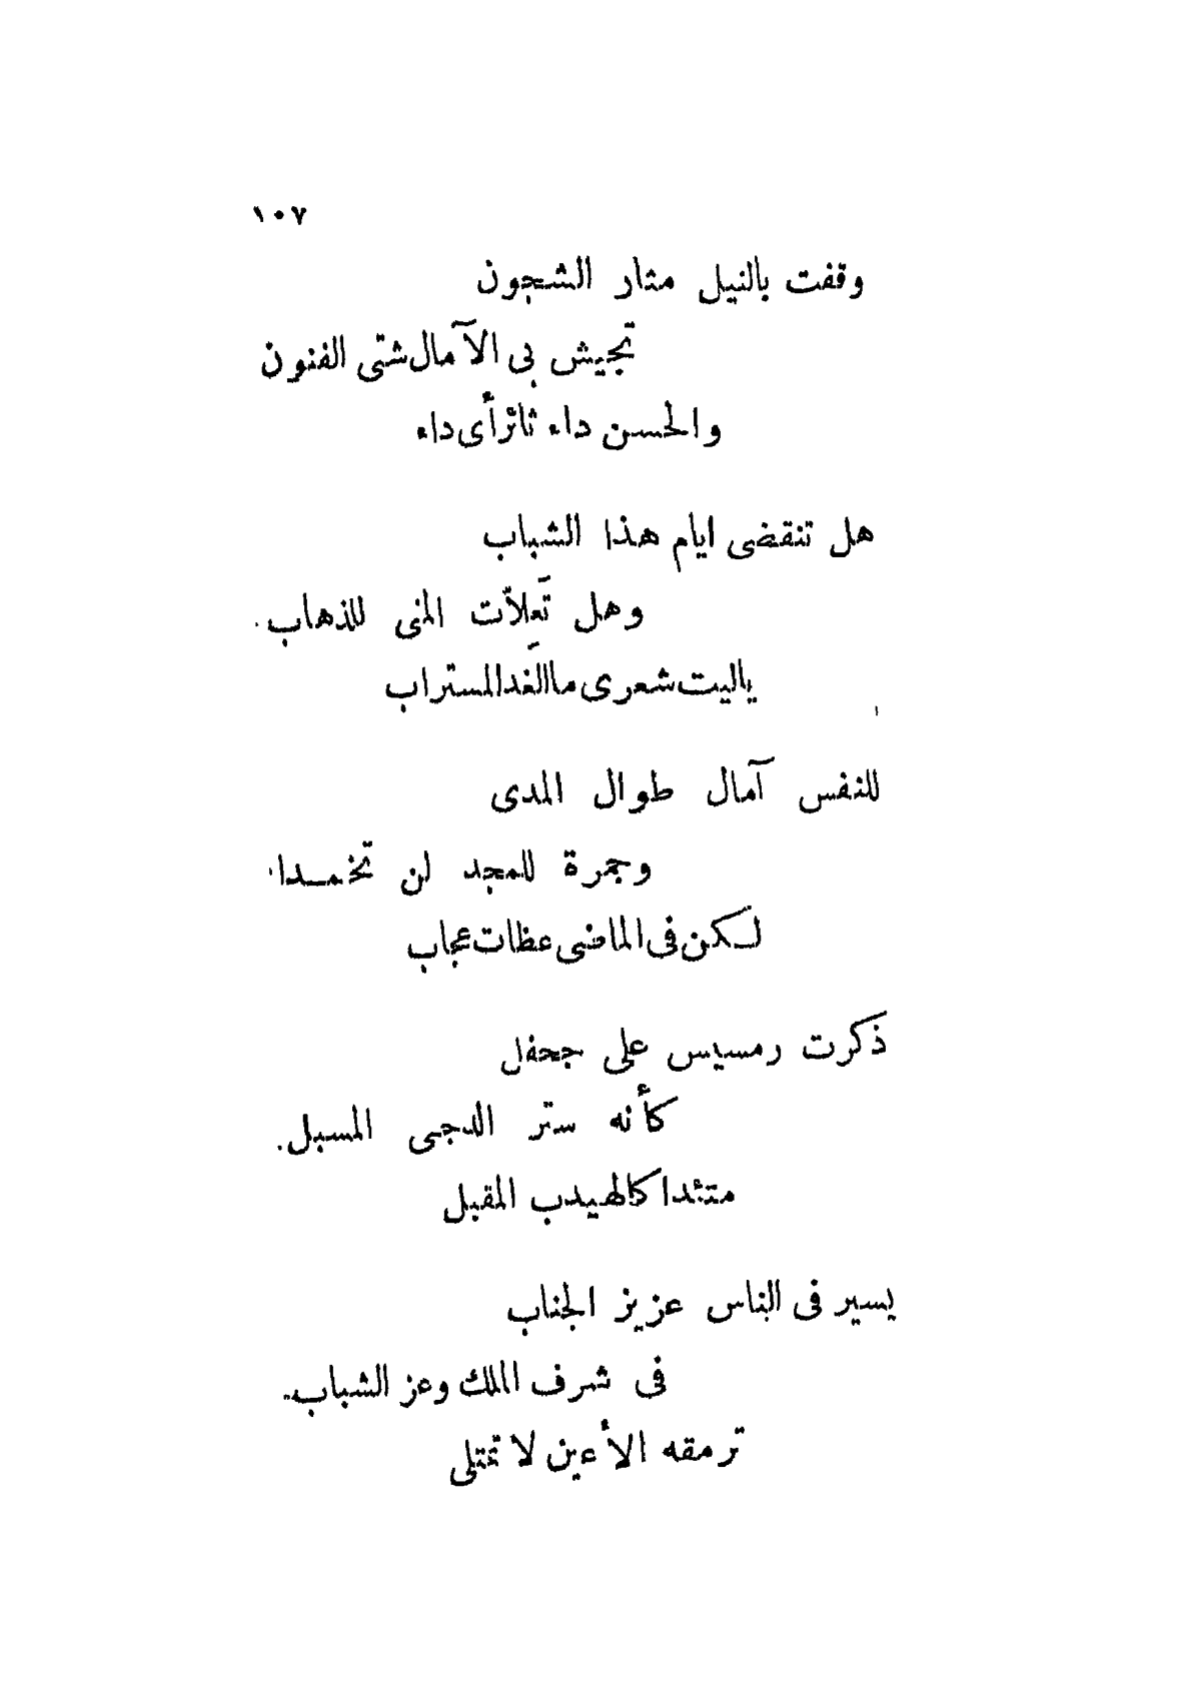 ١٠٧
وقفت بالنيل مثار الشجون
تجيش بى الآمال شتى الفنون
والحسن داء ثائر أى داء
هل تنقضى ايام هذا الشباب
وهل تَعِلاّت المنى للذهاب
ياليت شعرى ما الَغد المستراب
للنفس آمال طوال المدى
وجمرة للمجد لن تخمدا
لكن فى الماضى عظات عجاب
ذكرت رمسيس على جحفل
كأنه ستر الدجى المسبل
متئدا كالهيدب المقبل
يسير فى الناس عزيز الجناب
فى شرف الملك وعز الشباب
ترمقه الأعين لا تمتلى